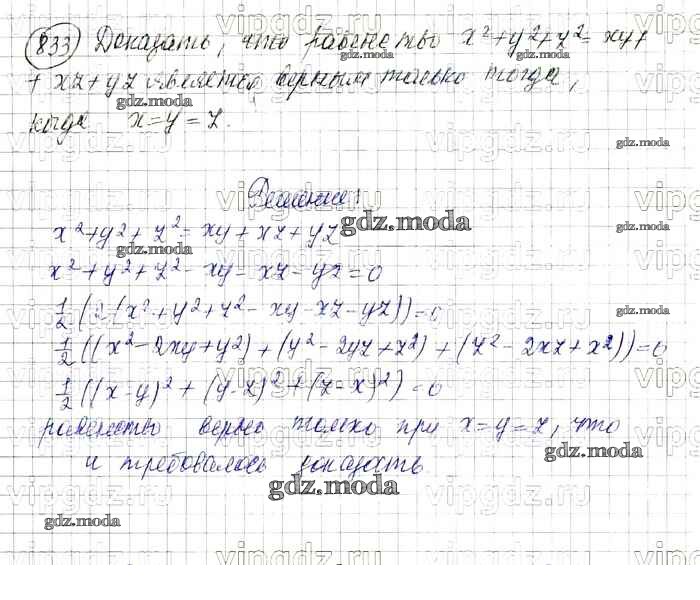 833 Доказать, что равенство x²+y²+z²=xy+
+ xz+yz является верным только тогда,
когда x=y=z.
Решение:
x²+y²+z²=xy+xz+yz
x²+y²+z²-xy-xz-yz=0
1/2(2(x²+y²+z²-xy-xz-yz))=0
1/2((x²-2xy+y²)+(y²-2yz+z²)+(z²-2xz+x²))=0
1/2((x-y)²+(y-z)²+(z-x)²)=0
равенство верно только при x=y=z, что
и требовалось доказать.
gdz.moda
vipgdz.ru